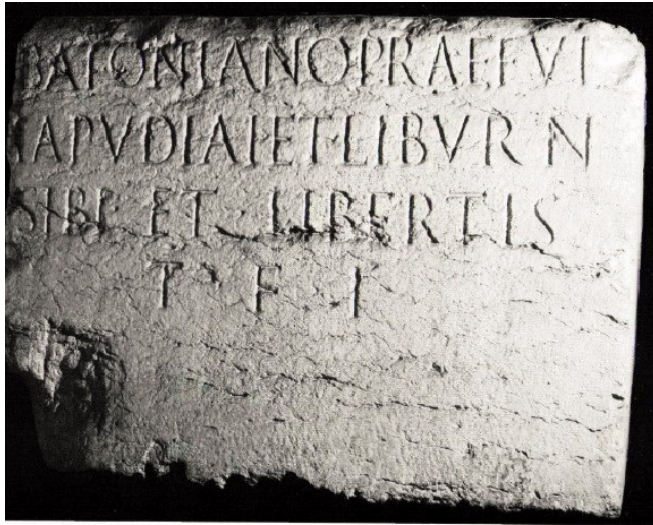 BATONIANO PRAEFVI
IAPVDIAI ET LIBVRN
SIBI ET LIBERTIS
T F I